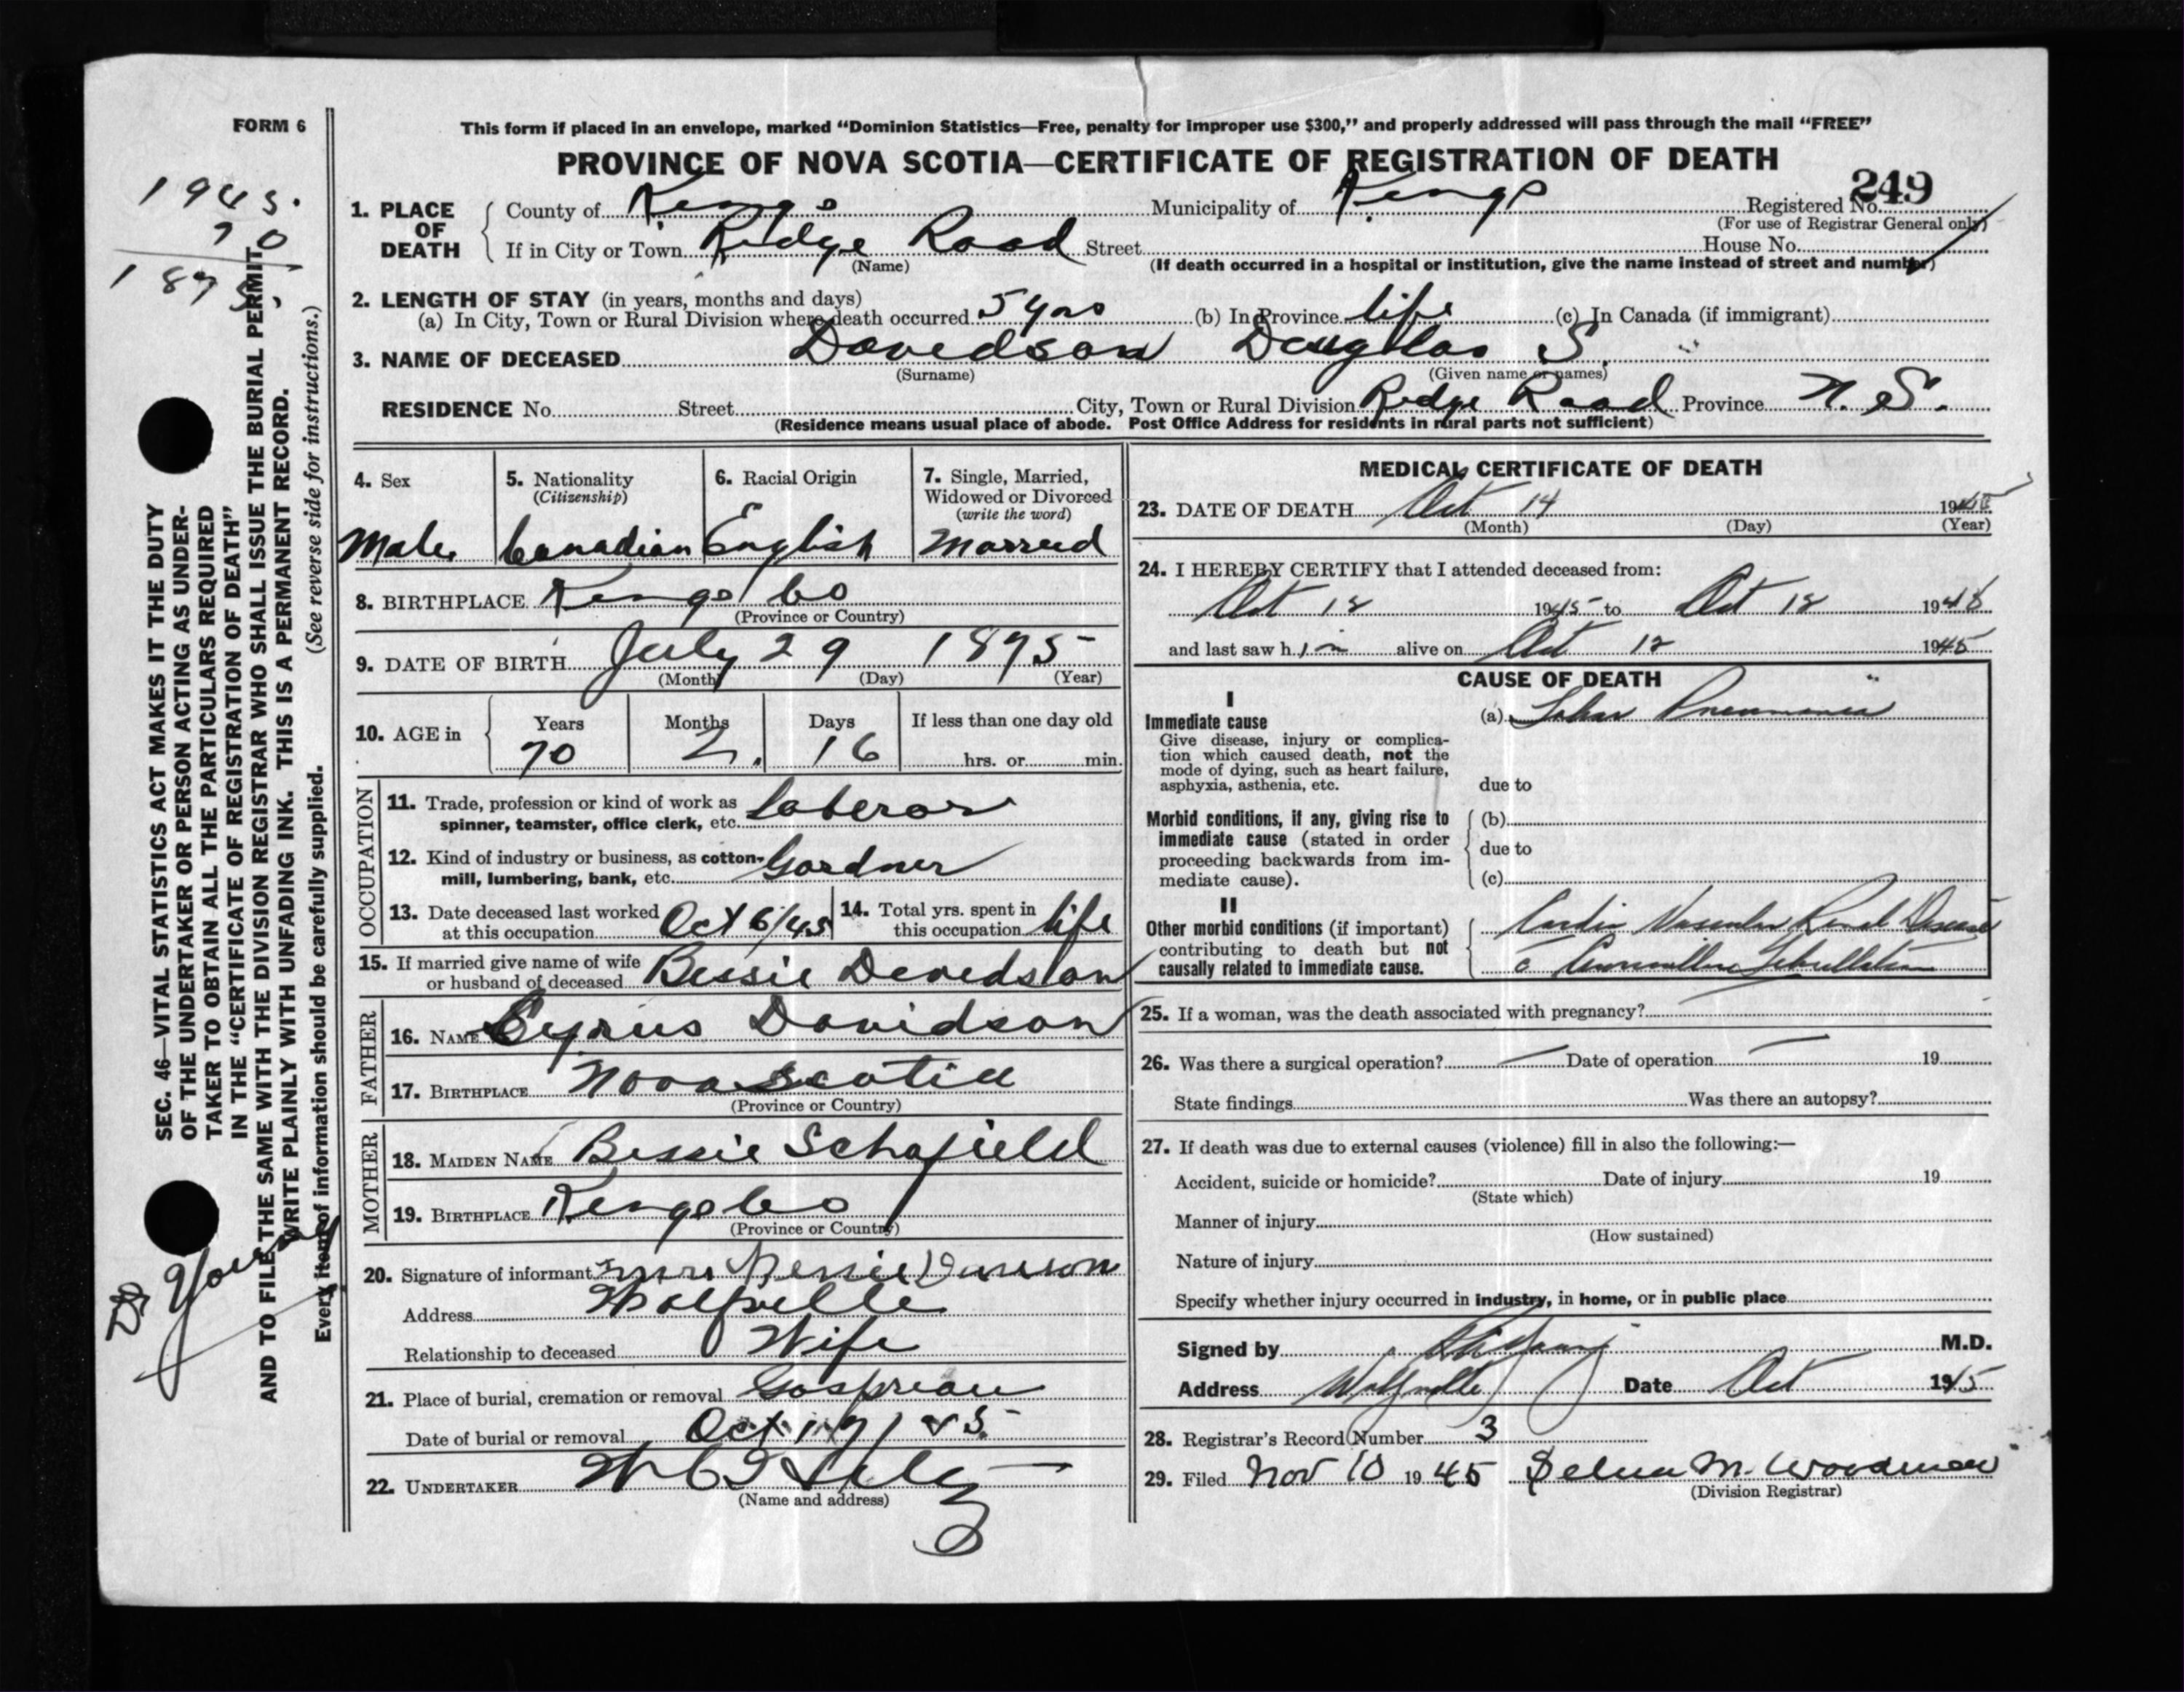 FORM 6
This form if placed in an envelope, marked "Dominion Statistics—Free, penalty for improper use $300," and properly addressed will pass through the mail "FREE"
PROVINCE OF NOVA SCOTIA—CERTIFICATE OF REGISTRATION OF DEATH
249
1945.
70
1875
1. PLACE OF DEATH
County of Kings Municipality of Kings Registered No.
(For use of Registrar General only)
If in City or Town Ridge Road Street House No.
(Name) (If death occurred in a hospital or institution, give the name instead of street and number)
2. LENGTH OF STAY (in years, months and days)
(a) In City, Town or Rural Division where death occurred 5 yrs (b) In Province life (c) In Canada (if immigrant)
3. NAME OF DECEASED Davidson Douglas S.
(Surname) (Given name or names)
RESIDENCE No. Street City, Town or Rural Division Ridge Road Province N. S.
(Residence means usual place of abode. Post Office Address for residents in rural parts not sufficient)
4. Sex
Male
5. Nationality
(Citizenship)
Canadian
6. Racial Origin
English
7. Single, Married,
Widowed or Divorced
(write the word)
Married
8. BIRTHPLACE Kings Co
(Province or Country)
9. DATE OF BIRTH July 29 1875
(Month) (Day) (Year)
10. AGE in Years Months Days If less than one day old
70 2. 16 hrs. or min.
OCCUPATION
11. Trade, profession or kind of work as
spinner, teamster, office clerk, etc. Laberor
12. Kind of industry or business, as cotton-
mill, lumbering, bank, etc. Gardner
13. Date deceased last worked
at this occupation Oct 6/45
14. Total yrs. spent in
this occupation life
15. If married give name of wife
or husband of deceased Bessie Davidson
FATHER
16. NAME Cyrus Davidson
17. BIRTHPLACE Nova Scotia
(Province or Country)
MOTHER
18. MAIDEN NAME Bessie Schofield
19. BIRTHPLACE Kings Co
(Province or Country)
20. Signature of informant Mrs Bessie Davidson
Address Wolfville
Relationship to deceased Wife
21. Place of burial, cremation or removal Gaspreau
Date of burial or removal Oct 17/45
22. UNDERTAKER
(Name and address)
3
MEDICAL CERTIFICATE OF DEATH
23. DATE OF DEATH Oct 14 1945
(Month) (Day) (Year)
24. I HEREBY CERTIFY that I attended deceased from:
Oct 12 1945 to Oct 12 1945
and last saw h im alive on Oct 12 1945
CAUSE OF DEATH
I
Immediate cause
Give disease, injury or complica-
tion which caused death, not the
mode of dying, such as heart failure,
asphyxia, asthenia, etc.
(a) Lobar Pneumonia
due to
Morbid conditions, if any, giving rise to
immediate cause (stated in order
proceeding backwards from im-
mediate cause).
(b)
due to
(c)
II
Other morbid conditions (if important)
contributing to death but not
causally related to immediate cause.
Cardio Vascular Renal Disease
c Auricular Fibrillation
25. If a woman, was the death associated with pregnancy?
26. Was there a surgical operation? Date of operation 19
State findings Was there an autopsy?
27. If death was due to external causes (violence) fill in also the following:—
Accident, suicide or homicide? Date of injury 19
(State which)
Manner of injury
(How sustained)
Nature of injury
Specify whether injury occurred in industry, in home, or in public place
Signed by Young M.D.
Address Wolfville Date Oct 1945
28. Registrar's Record Number 3
29. Filed Nov 10 1945 Selena M. Woodman
(Division Registrar)
SEC. 46—VITAL STATISTICS ACT MAKES IT THE DUTY
OF THE UNDERTAKER OR PERSON ACTING AS UNDER-
TAKER TO OBTAIN ALL THE PARTICULARS REQUIRED
IN THE "CERTIFICATE OF REGISTRATION OF DEATH"
AND TO FILE THE SAME WITH THE DIVISION REGISTRAR WHO SHALL ISSUE THE BURIAL PERMIT.
WRITE PLAINLY WITH UNFADING INK. THIS IS A PERMANENT RECORD.
Every item of information should be carefully supplied. (See reverse side for instructions.)
Dr Young